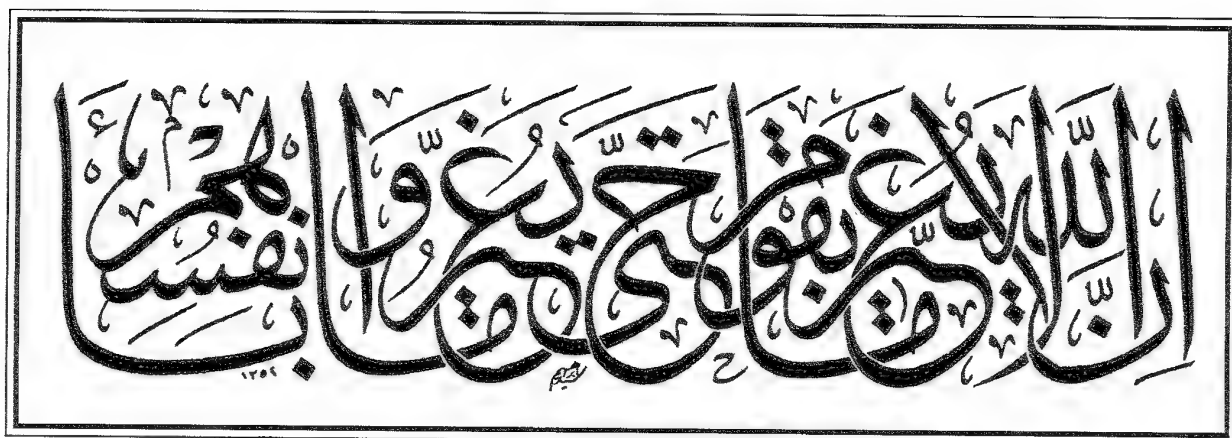 إِنَّ اللَّهَ لَا يُغَيِّرُ مَا بِقَوْمٍ حَتَّى يُغَيِّرُوا مَا بِأَنْفُسِهِمْ
١٣٥٢